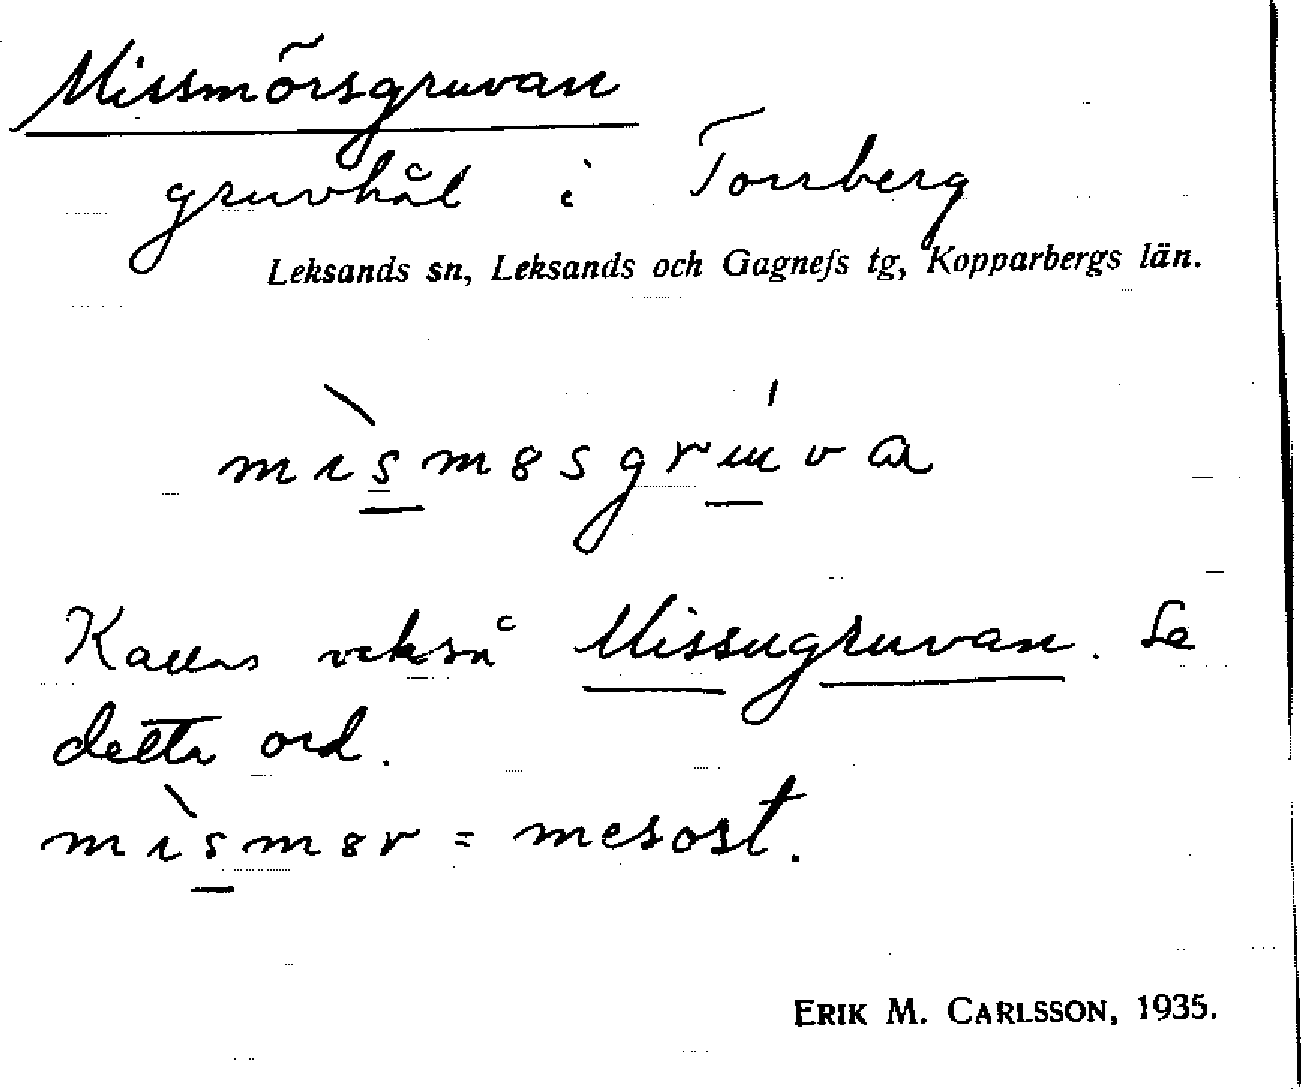 Missmörsgruvan
gruvhål i Torrberg
Leksands sn, Leksands och Gagnefs tg, Kopparbergs län.
mɪ̀smɞsgrɯ́va
Kallas också Missugruvan. Se
detta ord.
mɪ̀smɞr = mesost.
ERIK M. CARLSSON, 1935.